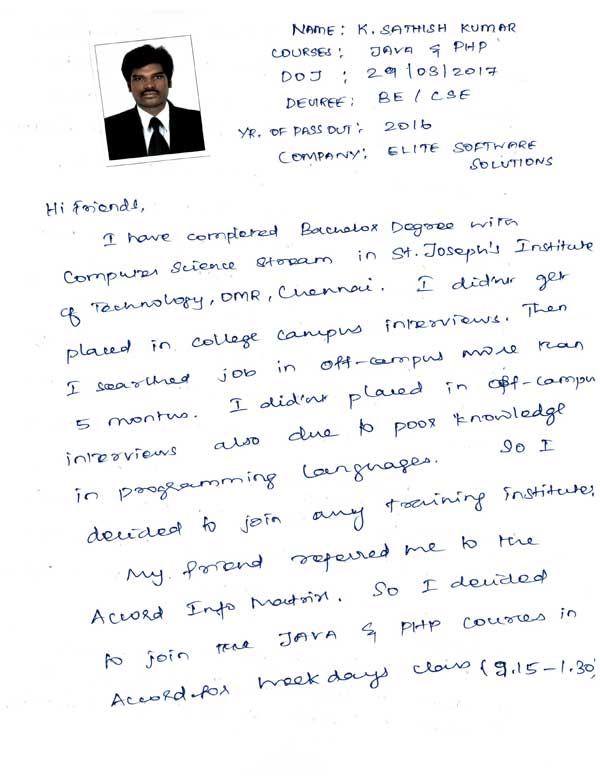 NAME: K. SATHISH KUMAR
COURSES: JAVA & PHP
DOJ : 29/03/2017
DEGREE: BE / CSE
YR. OF PASS OUT: 2016
COMPANY: ELITE SOFTWARE
SOLUTIONS
Hi Friends,
I have completed Bachelor Degree with
Computer Science Stream in St. Joseph's Institute
of Technology, OMR, Chennai. I didn't get
placed in college campus interviews. Then
I searched job in off-campus more than
5 months. I didn't placed in off-campu
interviews also due to poor knowledge
in programming languages. So I
decided to join any training institutes
My friend referred me to the
Accord Info Matrix. So I decided
to join the JAVA & PHP courses in
Accord for weekdays class (9.15-1.30)